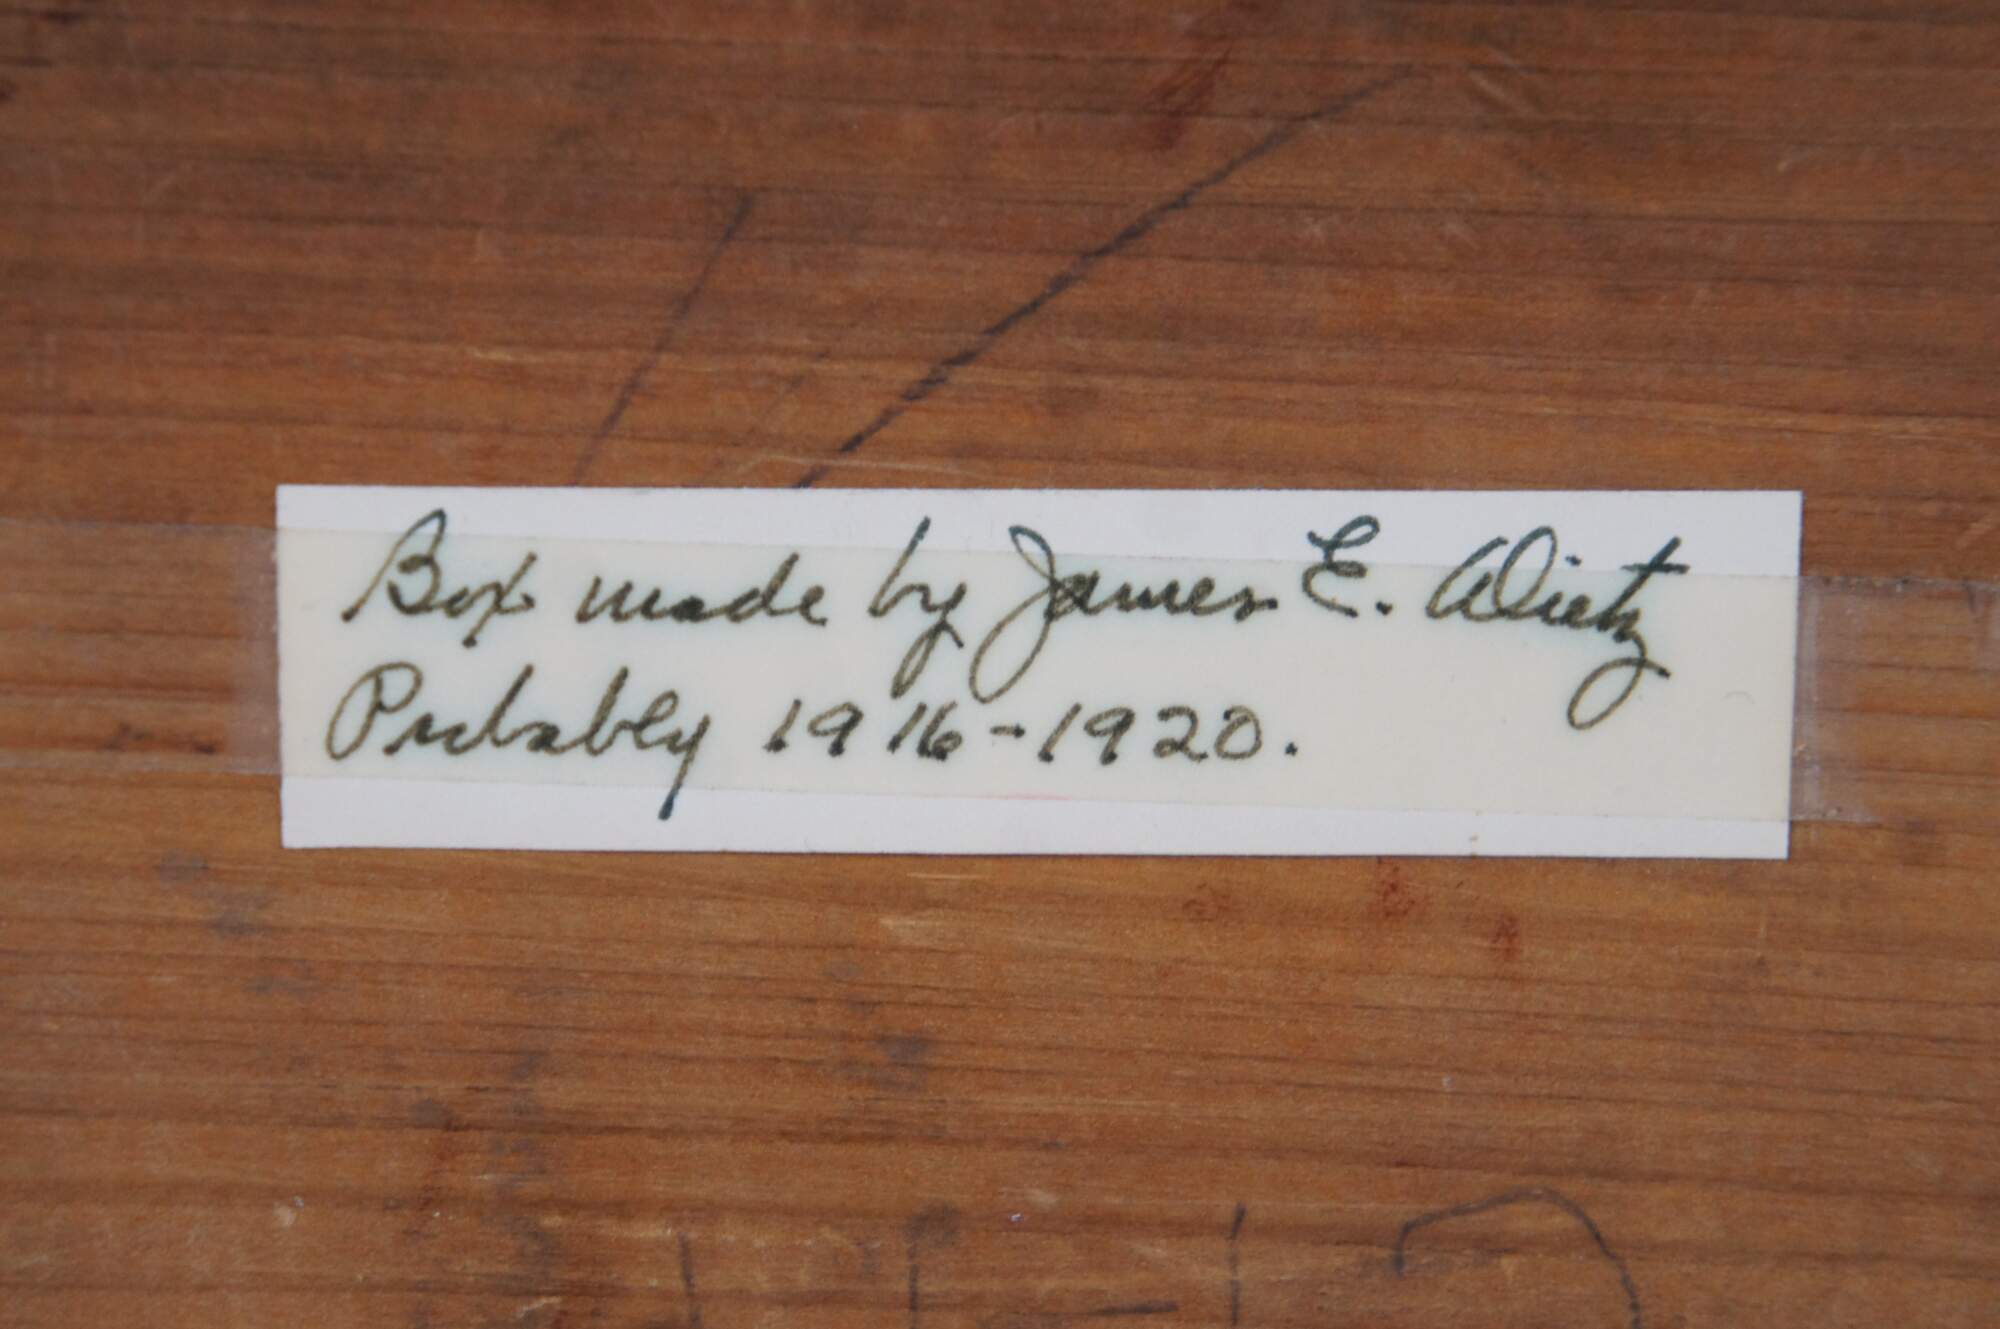 Box made by James E. Dietz
Probably 1916-1920.